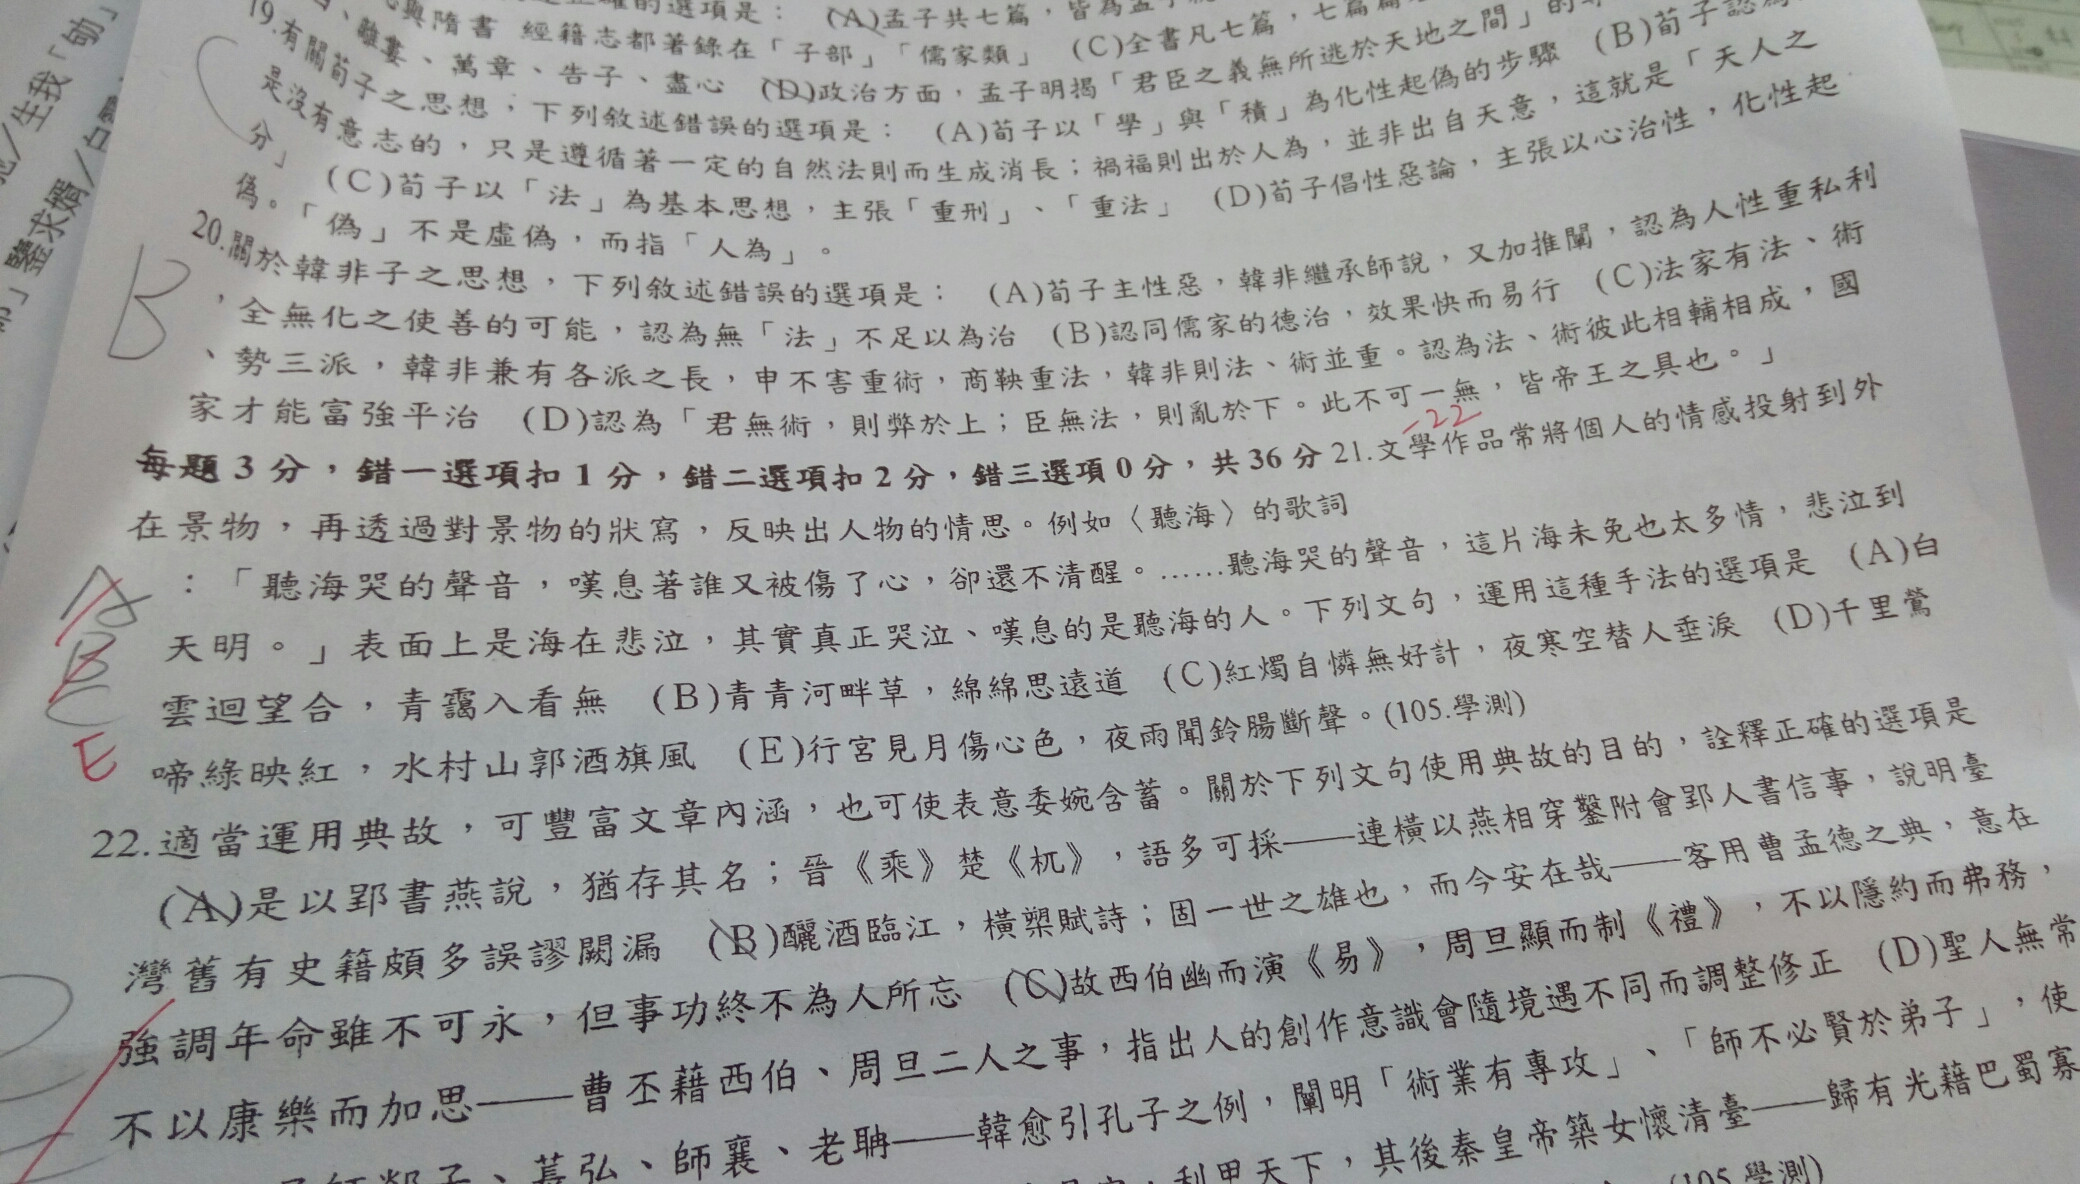 正確的選項是： (A)孟子共七篇，皆為孟子
與隋書 經籍志都著錄在「子部」「儒家類」 (C)全書凡七篇，七篇篇
、離婁、萬章、告子、盡心 (D)政治方面，孟子明揭「君臣之義無所逃於天地之間」的
19.有關荀子之思想，下列敘述錯誤的選項是： (A)荀子以「學」與「積」為化性起偽的步驟 (B)荀子認為
是沒有意志的，只是遵循著一定的自然法則而生成消長；禍福則出於人為，並非出自天意，這就是「天人之
分」 (C)荀子以「法」為基本思想，主張「重刑」、「重法」 (D)荀子倡性惡論，主張以心治性，化性起
偽。「偽」不是虛偽，而指「人為」。
20.關於韓非子之思想，下列敘述錯誤的選項是： (A)荀子主性惡，韓非繼承師說，又加推闡，認為人性重私利
，全無化之使善的可能，認為無「法」不足以為治 (B)認同儒家的德治，效果快而易行 (C)法家有法、術
、勢三派，韓非兼有各派之長，申不害重術，商鞅重法，韓非則法、術並重。認為法、術彼此相輔相成，國
家才能富強平治 (D)認為「君無術，則弊於上；臣無法，則亂於下。此不可一無，皆帝王之具也。」
B
-22
每題 3 分，錯一選項扣 1 分，錯二選項扣 2 分，錯三選項 0 分，共 36 分 21.文學作品常將個人的情感投射到外
在景物，再透過對景物的狀寫，反映出人物的情思。例如〈聽海〉的歌詞
：「聽海哭的聲音，嘆息著誰又被傷了心，卻還不清醒。……聽海哭的聲音，這片海未免也太多情，悲泣到
天明。」表面上是海在悲泣，其實真正哭泣、嘆息的是聽海的人。下列文句，運用這種手法的選項是 (A)白
雲迴望合，青靄入看無 (B)青青河畔草，綿綿思遠道 (C)紅燭自憐無好計，夜寒空替人垂淚 (D)千里鶯
啼綠映紅，水村山郭酒旗風 (E)行宮見月傷心色，夜雨聞鈴腸斷聲。(105.學測)
A
B
C
E
22.適當運用典故，可豐富文章內涵，也可使表意委婉含蓄。關於下列文句使用典故的目的，詮釋正確的選項是
(A)是以郢書燕說，猶存其名；晉《乘》楚《杌》，語多可採──連橫以燕相穿鑿附會郢人書信事，說明臺
灣舊有史籍頗多誤謬闕漏 (B)釃酒臨江，橫槊賦詩；固一世之雄也，而今安在哉──客用曹孟德之典，意在
強調年命雖不可永，但事功終不為人所忘 (C)故西伯幽而演《易》，周旦顯而制《禮》，不以隱約而弗務，
不以康樂而加思──曹丕藉西伯、周旦二人之事，指出人的創作意識會隨境遇不同而調整修正 (D)聖人無常
郯子、萇弘、師襄、老聃──韓愈引孔子之例，闡明「術業有專攻」、「師不必賢於弟子」，使
利甲天下，其後秦皇帝築女懷清臺──歸有光藉巴蜀寡
(105.學測)